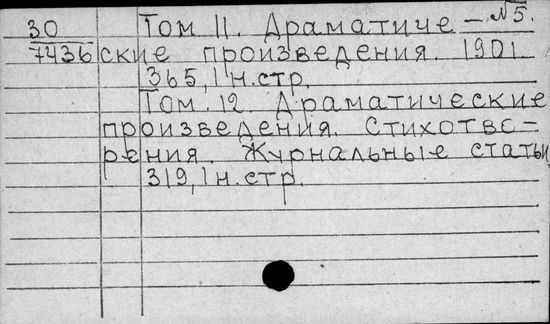 30 Том 11. Драматиче- №5.
7436 ские произведения. 1901.
365, 1 н. стр.
Том. 12. Драматические
произведения. Стихотво-
рения. Журнальные статьи
319, 1 н. стр.